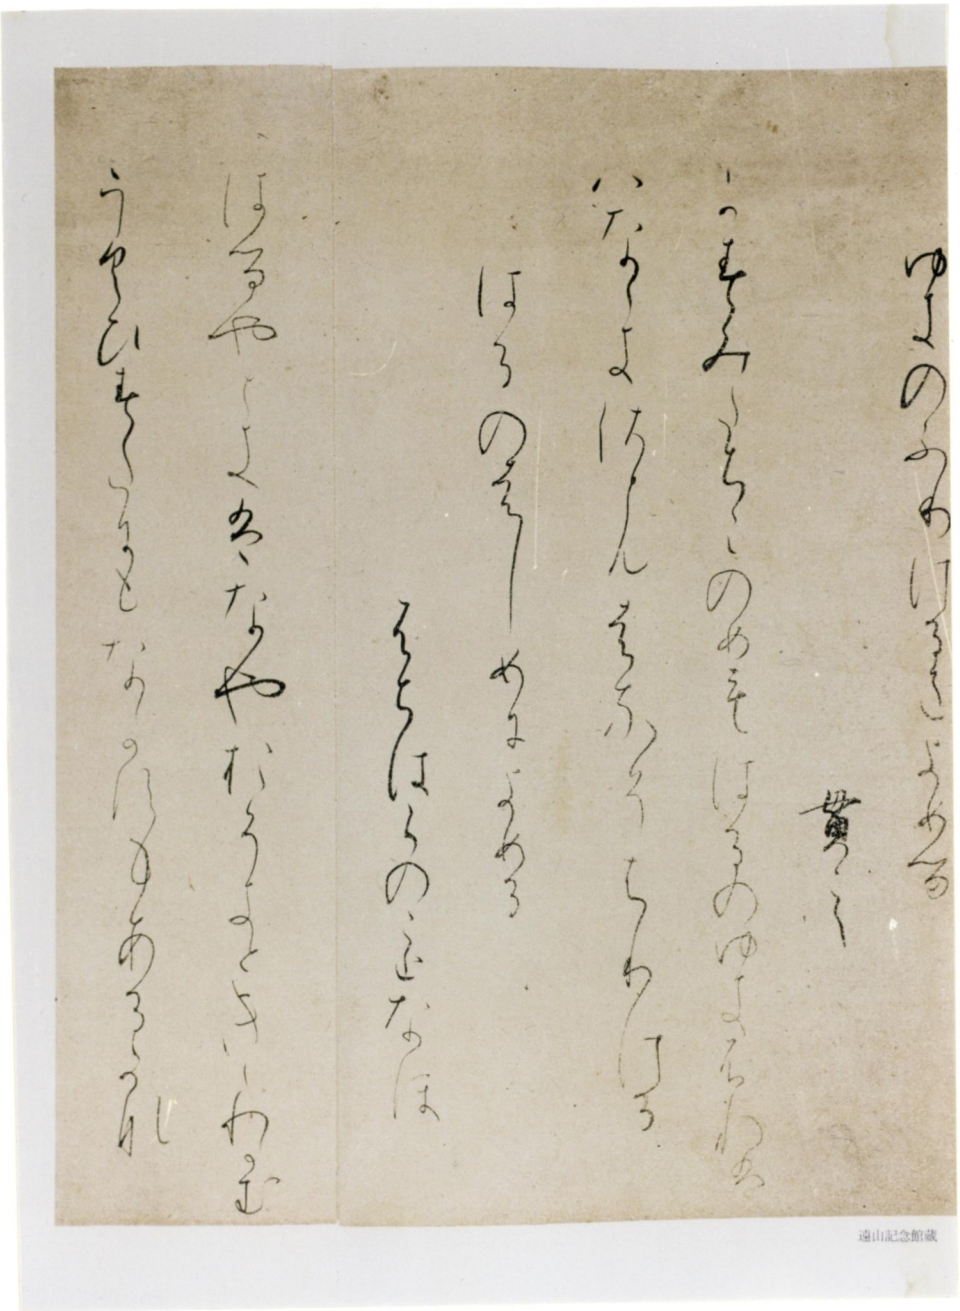 ゆきのふりけるをよめる
貫之
かすみたちこのめもはるのゆきふれは
はなゝきさともはなそちりける
はるのはしめによめる
ふちはらのことなほ
はるやときはなやおそきとききわかむ
うくひすたにもなかすもあるかな
遠山記念館蔵